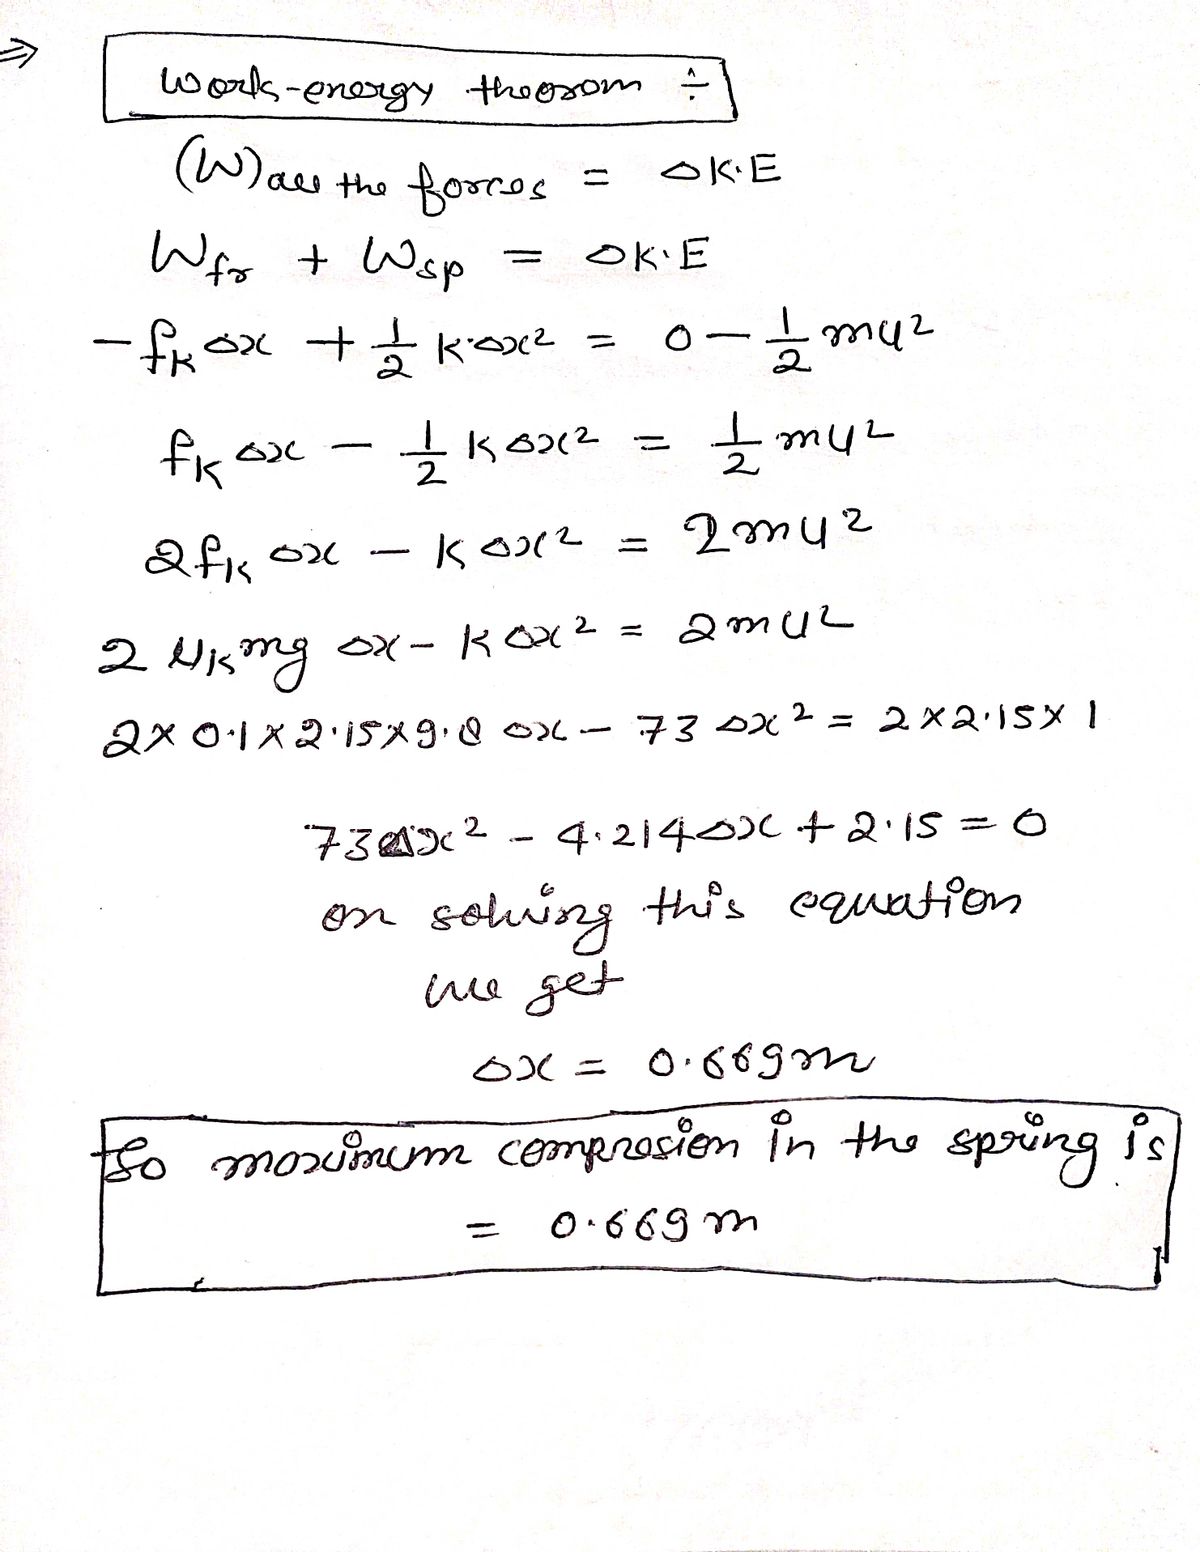 ⇒ Work-energy theorom ÷
(W)all the forces = ΔK.E
Wfr + Wsp = ΔK.E
-fk Δx + 1/2 K.Δx² = 0 - 1/2 mu²
fk Δx - 1/2 K Δx² = 1/2 mu²
2fk Δx - K Δx² = 2mu²
2 μk mg Δx - K Δx² = 2mu²
2×0.1×2.15×9.8 Δx - 73 Δx² = 2×2.15×1
73Δx² - 4.214Δx + 2.15 = 0
on solving this equation
we get
Δx = 0.669m
So maximum compresion in the spring is
= 0.669 m